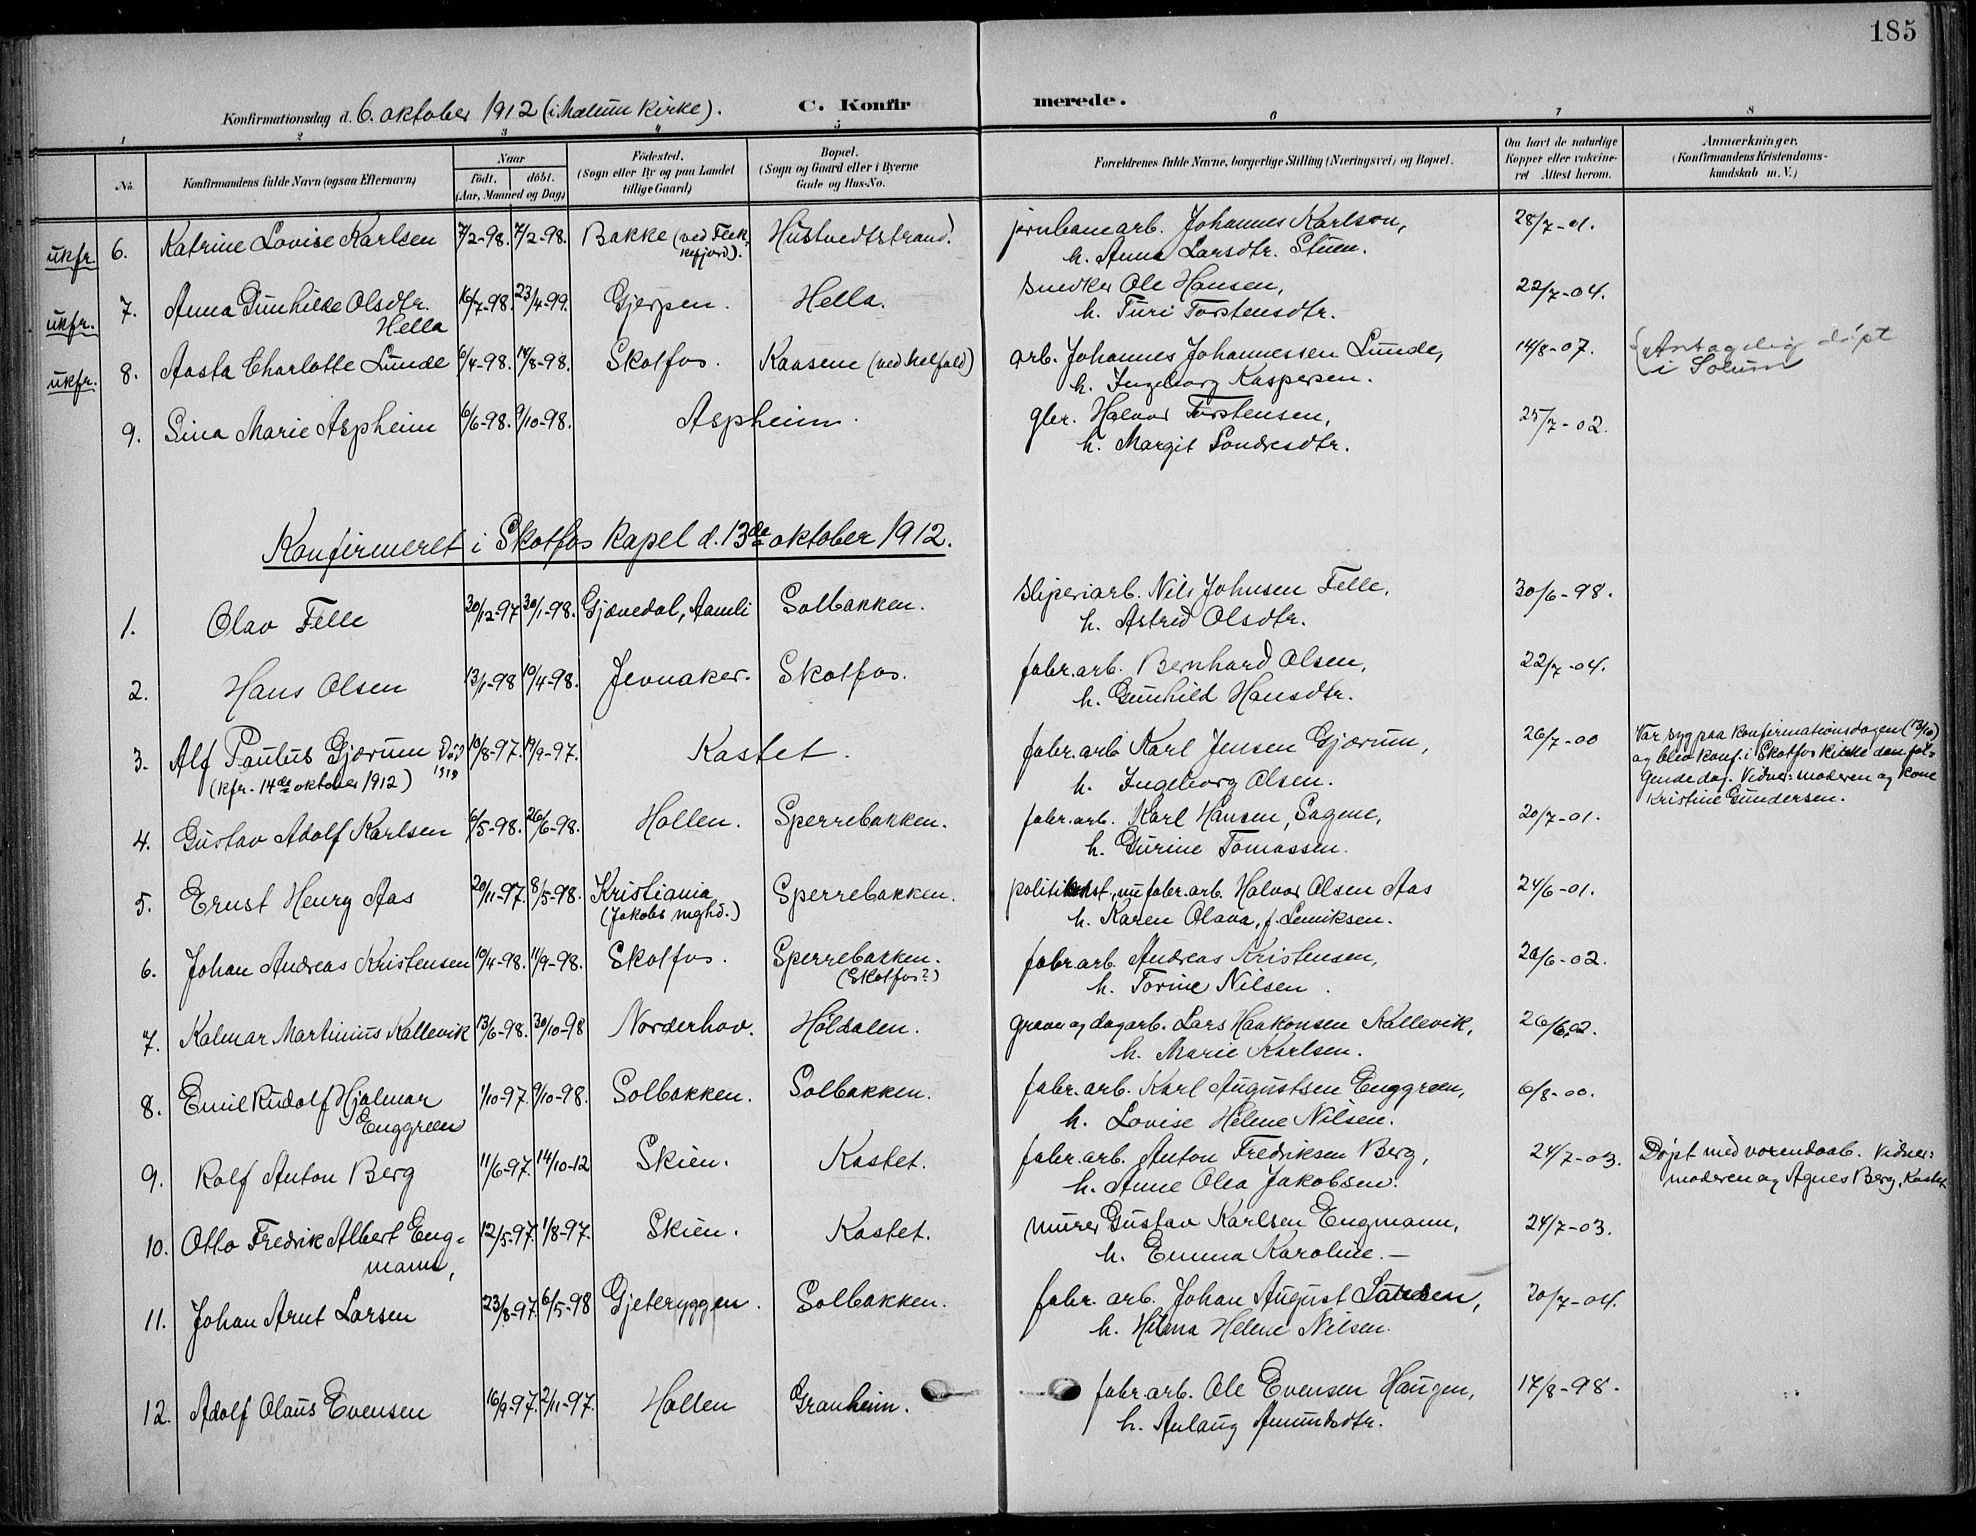 185
Konfirmationsdag d. 6. oktober 1912 (i Melum kirke). C. Konfirmerede.
1 2 3 4 5 6 7 8
No. Konfirmandens fulde Navn (ogsaa Efternavn) Naar Födt. döbt. (Aar, Maaned og Dag) Födested. (Sogn eller By og paa Landet tillige Gaard) Bopæl. (Sogn og Gaard eller i Byerne Gade og Hus-No. Forældrenes fulde Navne, borgerlige Stilling (Næringsvei) og Bopæl. Om havt de naturlige Kopper eller vakcineret Attest herom. Anmærkninger. (Konfirmandens Kristendomskundskab m. V.)
ukfr. 6. Katrine Lovise Karlsen 7/2-98. 7/2-98. Bakke (ved Flekkefjord). Hustvedtstrand. jernbanearb. Johannes Karlson, 28/7-01.
h. Anna Larsdtr. Stuen.
ukfr. 7. Anna Gunhilde Olsdtr. Hella 16/7-98. 23/4-99. Gjerpen. Hella. snedker Ole Hansen, 22/7-04.
h. Turi Torstensdtr.
ukfr. 8. Aasta Charlotte Lunde 6/4-98. 14/8-98. Skotfos. Kaasene (ved Melfald) arb. Johannes Johannessen Lunde, 14/8-07. Antagelig døpt
h. Ingeborg Kaspersen. i Solum
9. Sina Marie Aspheim 6/6-98. 9/10-98. Aspheim. gbr. Halvor Torstensen, 25/7-02.
h. Margit Sondresdtr.
Konfirmeret i Skotfos kapel d. 13de oktober 1912.
1. Olav Felle 30/12-97 30/1-98. Gjævedal, Aamli Solbakken. sliperiarb. Nils Johnsen Felle, 30/6-98.
h. Astrid Olsdtr.
2. Hans Olsen 13/1-98 10/4-98. Jevnaker. Skotfos. fabr.arb. Bernhard Olsen, 22/7-04.
h. Gunhild Hansdtr.
3. Alf Paulus Gjærum Død 1919 10/8-97. 19/9-97. Kastet. fabr.arb. Karl Jensen Gjærum, 26/7-00 Var syg paa konfirmationsdagen (13/10)
(kfr. 14de oktober 1912) h. Ingeborg Olsen. og blev konf. i Skotfos kirke den følgende dag. Vidner: moderen og kone Kristine Gundersen.
4. Gustav Adolf Karlsen 6/5-98. 26/6-98. Hollen. Sperrebakken. fabr.arb. Karl Hansen, Sagene, 20/7-01.
h. Gurine Tomassen.
5. Ernst Henry Aas 20/11-97. 8/5-98. Kristiania (Jakobs mghd.) Sperrebakken. politikonst., nu fabr.arb. Halvor Olsen Aas 24/6-01.
h. Karen Olava,
6. Johan Andreas Kristensen 10/4-98. 11/9-98. Skotfos. Sperrebakken. (Skotfos?) fabr.arb. Andreas Kristensen, 26/6-02.
h. Torine Nilsen.
7. Kalmar Martinius Kallevik 13/6-98. 30/10-98 Norderhov. Høldalen. graver og dagarb. Lars Haakonsen Kallevik, 26/6 02.
h. Marie Karlsen.
8. Emil Rudolf Hjalmar Enggreen 1/10-97. 9/10-98. Solbakken. Solbakken. fabr.arb. Karl Augustsen Enggreen, 6/8-00.
h. Lovise Helene Nilsen.
9. Rolf Anton Berg 11/6-97. 14/10-12 Skien. Kastet. fabr.arb. Anton Fredriksen Berg, 24/7-03. Døpt med voxendaab. Vidner:
h. Anne Olea Jakobsen. moderen og Agnes Berg, Kastet
10. Otto Fredrik Albert Engmann, 12/5-97. 1/8-97. Skien. Kastet. murer Gustav Karlsen Engmann, 24/7-03.
h. Emma Karoline. —
11. Johan Arnt Larsen 23/8-97. 6/5-98 Gjeteryggen. Solbakken. fabr. arb. Johan August Larsen, 20/7-04.
h. Helene Nilsen.
12. Adolf Olaus Evensen 16/9-97. 2/11-97. Hollen Granheim. fabr.arb. Ole Evensen Haugen, 17/8-98.
h. Anlaug Amundsdtr.